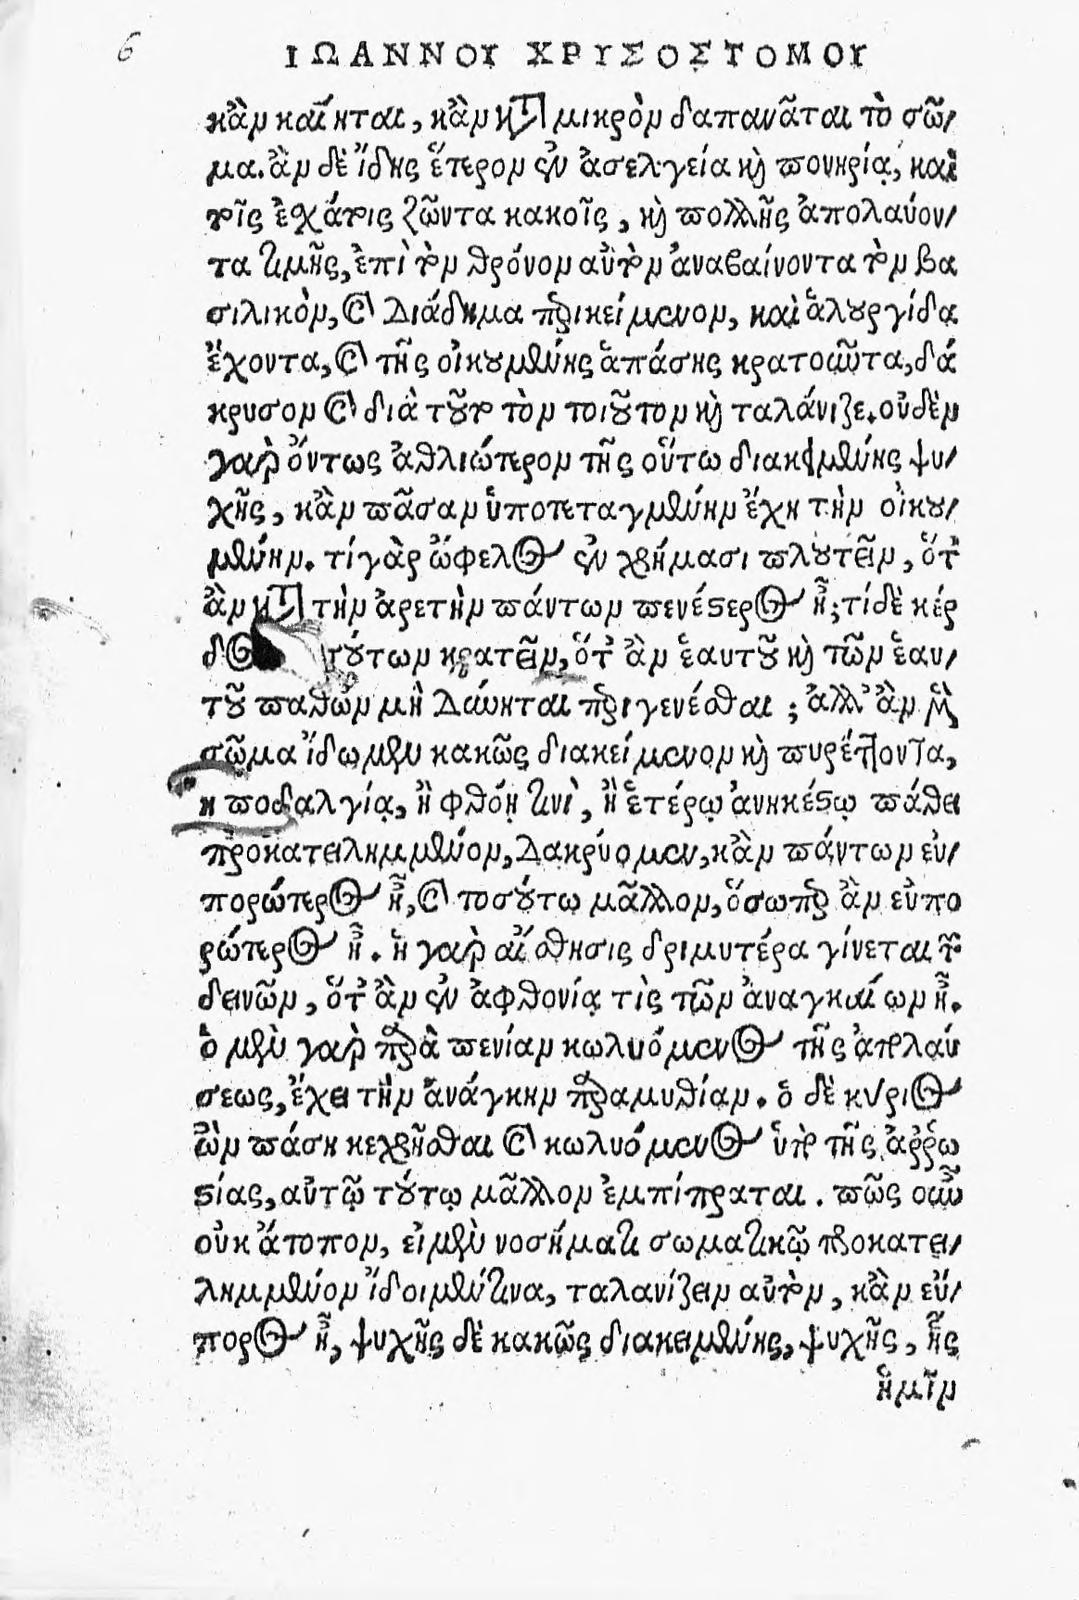 6
ΙΩΑΝΝΟΥ ΧΡΥΣΟΣΤΟΜΟΥ
κἂν καίηται, κἂν κατὰ μικρὸν δαπανᾶται τὸ σῶ-
μα. ἂν δὲ ἴδῃς ἕτερον ἐν ἀσελγείᾳ καὶ πονηρίᾳ, καὶ
τοῖς ἐσχάτοις ζῶντα κακοῖς, καὶ πολλῆς ἀπολαύον-
τα τιμῆς, ἐπὶ τὸν θρόνον αὐτὸν ἀναβαίνοντα τὸν βα
σιλικὸν, καὶ διάδημα περικείμενον, καὶ ἁλουργίδα
ἔχοντα, καὶ τῆς οἰκουμένης ἁπάσης κρατοῦντα, δά
κρυσον καὶ διὰ τοῦτο τὸν τοιοῦτον καὶ ταλάνιζε. οὐδὲν
γὰρ ὄντως ἀθλιώτερον τῆς οὕτω διακειμένης ψυ-
χῆς, κἂν πᾶσαν ὑποτεταγμένην ἔχῃ τὴν οἰκου-
μένην. τί γὰρ ὤφελος ἐν χρήμασι πλουτεῖν, ὅτ
ἂν κατὰ τὴν ἀρετὴν πάντων πενέστερος ᾖ; τί δὲ κέρ
δος τούτων κρατεῖν, ὅτ ἂν ἑαυτοῦ καὶ τῶν ἑαυ-
τοῦ παθῶν μὴ δύνηται περιγενέσθαι; ἀλλ' ἂν μὲν
σῶμα ἴδωμεν κακῶς διακείμενον καὶ πυρέττοντα,
ἢ ποδαλγίᾳ, ἢ φθόῃ τινὶ, ἢ ἑτέρῳ ἀνηκέστῳ πάθει
προκατειλημμένον, δακρύομεν, κἂν πάντων εὐ-
πορώτερος ᾖ, καὶ τοσούτῳ μᾶλλον, ὅσωπερ ἂν εὐπο
ρώτερος ᾖ. ἡ γὰρ αἴσθησις δριμυτέρα γίνεται τῶν
δεινῶν, ὅτ ἂν ἐν ἀφθονίᾳ τὶς τῶν ἀναγκαίων ᾖ.
ὁ μὲν γὰρ παρὰ πενίαν κωλυόμενος τῆς ἀπολαύ
σεως, ἔχει τὴν ἀνάγκην παραμυθίαν. ὁ δὲ κύριος
ὢν πάσῃ κεχρῆσθαι καὶ κωλυόμενος ὑπὸ τῆς ἀῤῥω
στίας, αὐτῷ τούτῳ μᾶλλον ἐμπίπραται. πῶς οὖν
οὐκ ἄτοπον, εἰ μὲν νοσήματι σωματικῷ προκατει-
λημμένον ἴδοιμέν τινα, ταλανίζειν αὐτὸν, κἂν εὔ-
πορος ᾖ, ψυχῆς δὲ κακῶς διακειμένης, ψυχῆς, ἧς
ἡμῖν